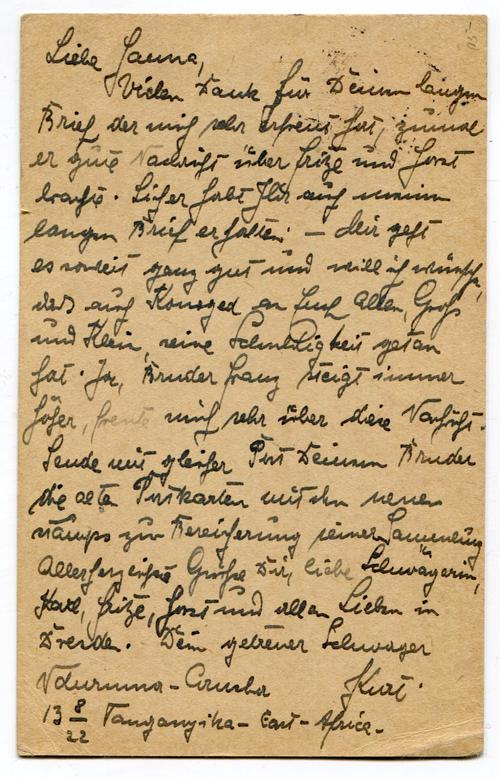 Liebe Hanna,
Vielen Dank für Deinen langen
Brief der mich sehr erfreut hat, zumal
er gute Nachricht über Fritze und Horst
brachte. Sicher habt Ihr auch meinen
langen Brief erhalten. – Mir geht
es soweit ganz gut und will ich wünschen,
dass auch an Euch Allen, Groß
und Klein, seine Schuldigkeit getan
hat. Ja, Bruder Franz steigt immer
höher, freute mich sehr über diese Nachricht.
Sende mit gleicher Post Deinem Bruder
die alten Postkarten mit den neuen
stamps zur Bereicherung seiner Sammlung
Allerherzlichste Grüße Dir, liebe Schwägerin,
Karl, Fritze, Horst und allen Lieben in
Dresden. Dein getreuer Schwager
Kurt.
13 8/22 Tanganyika – East – Africa –